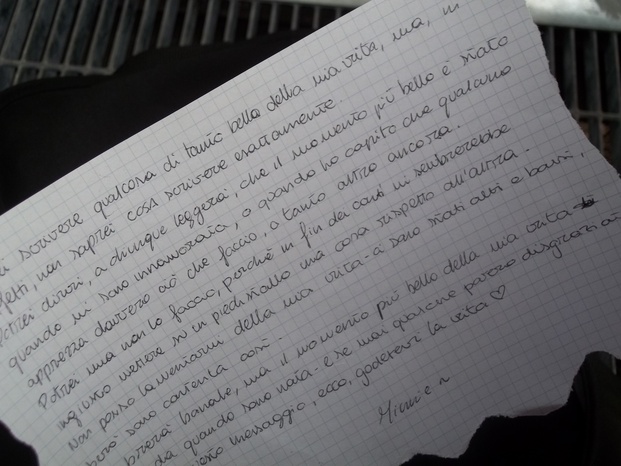 scrivere qualcosa di tanto bello della mia vita, ma, in
fetti, non saprei cosa scrivere esattamente.
Potrei dirvi, a chiunque leggerà, che il momento più bello è stato
quando mi sono innamorata, o quando ho capito che qualcuno
apprezza davvero ciò che faccio, o tanto altro ancora.
Potrei ma non lo faccio, perchè in fin dei conti mi sembrerebbe
ingiusto mettere su un piedistallo una cosa rispetto all'altra.
Non posso lamentarmi della mia vita. ci sono stati alti e bassi,
però sono contenta così.
banale, ma il momento più bello della mia vita
da quando sono nata. e se mai qualche povero disgraziato
messaggio, ecco, godetevi la vita ♡